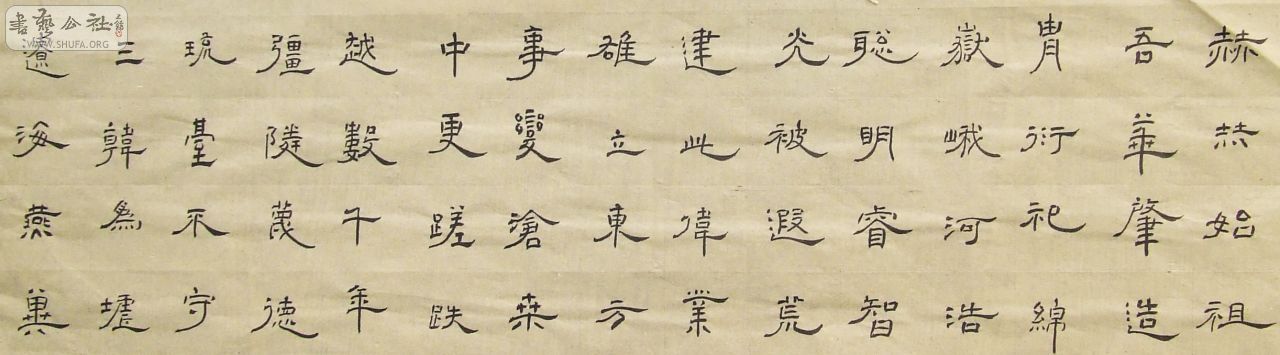 書藝公社
WWW.SHUFA.ORG
赫赫始祖
吾華肇造
胄衍祀綿
嶽峨河浩
聡明睿智
光被遐荒
建此偉業
雄立東方
事變滄桒
中更蹉跌
越數千年
彊隣蔑德
琉臺不守
三韓為墟
遼海燕冀